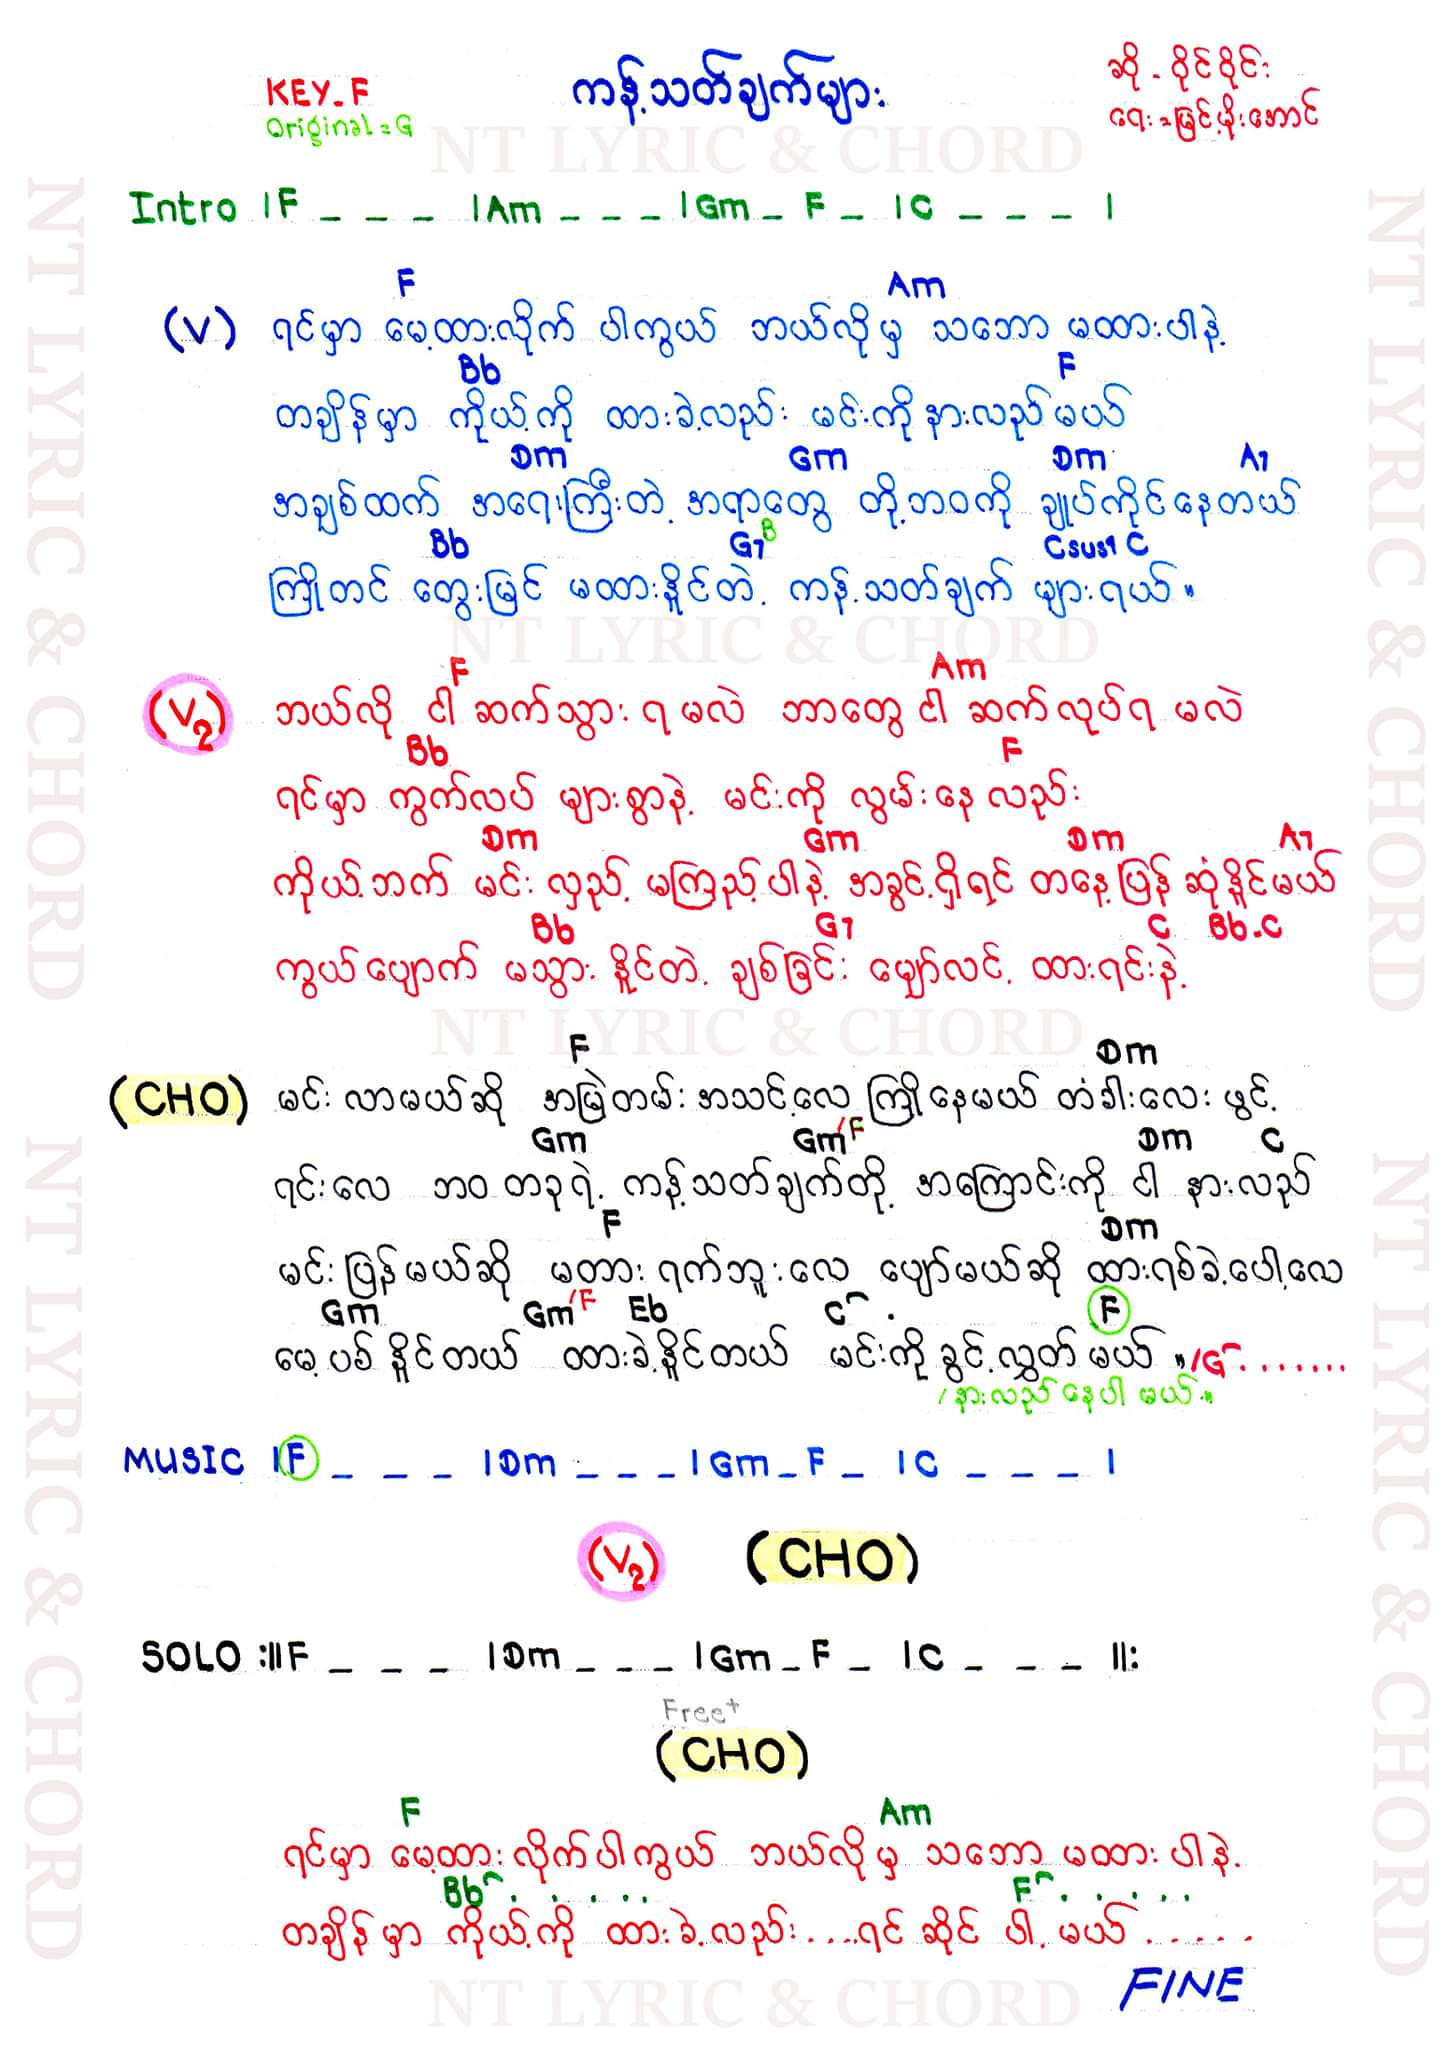 KEY-F
Original=G
ကန့်သတ်ချက်များ
ဆို - ဝိုင်ဝိုင်း
ရေး = မြင့်မိုးအောင်
NT LYRIC & CHORD
Intro |F _ _ _ |Am _ _ _ |Gm _ F _ |C _ _ _ |
F Am
(V) ရင်မှာ မေ့ထားလိုက် ပါကွယ် ဘယ်လိုမှ သဘော မထားပါနဲ့
Bb F
တချိန်မှာ ကိုယ့်ကို ထားခဲ့လည်း မင်းကိုနားလည်မယ်
Dm Gm Dm A7
အချစ်ထက် အရေးကြီးတဲ့ အရာတွေ တို့ဘဝကို ချုပ်ကိုင်နေတယ်
Bb G7 B Csus4 C
ကြိုတင် တွေးမြင် မထားနိူင်တဲ့ ကန့်သတ်ချက် များရယ်။
NT LYRIC & CHORD
F Am
(V2) ဘယ်လို ငါ ဆက်သွား ရ မလဲ ဘာတွေ ငါ ဆက်လုပ်ရ မလဲ
Bb F
ရင်မှာ ကွက်လပ် များစွာနဲ့ မင်းကို လွမ်းနေ လည်း
Dm Gm Dm A7
ကိုယ့်ဘက် မင်း လှည့် မကြည့်ပါနဲ့ အခွင့်ရှိရင် တနေ့ပြန် ဆုံနိူင်မယ်
Bb G7 C Bb.C
ကွယ်ပျောက် မသွား နိူင်တဲ့ ချစ်ခြင်း မျှော်လင့် ထားရင်းနဲ့
NT LYRIC & CHORD
F Dm
(CHO) မင်း လာမယ်ဆို အမြဲတမ်း အသင့်လေ ကြိုနေမယ် တံခါးလေး ဖွင့်
Gm Gm/F Dm C
ရင်းလေ ဘဝ တခုရဲ့ ကန့်သတ်ချက်တို့ အကြောင်းကို ငါ နားလည်
F Dm
မင်း ပြန်မယ်ဆို မတား ရက်ဘူးလေ ပျော်မယ်ဆို ထားရစ်ခဲ့ပေါ့လေ
Gm Gm/F Eb C . F
မေ့ပစ်နိူင်တယ် ထားခဲ့နိူင်တယ် မင်းကိုခွင့်လွှတ် မယ် ။ /G.......
/နားလည်နေပါ မယ်။
MUSIC |F _ _ _ |Dm _ _ _ |Gm _ F _ |C _ _ _ |
(V2) (CHO)
SOLO :||F _ _ _ |Dm _ _ _ |Gm _ F _ |C _ _ _ ||:
Free+
(CHO)
F Am
ရင်မှာ မေ့ထား လိုက်ပါကွယ် ဘယ်လိုမှ သဘော မထား ပါနဲ့
Bb ..... F .....
တချိန်မှာ ကိုယ့်ကို ထားခဲ့လည်း....ရင် ဆိုင် ပါ့ မယ် ......
FINE
NT LYRIC & CHORD
NT LYRIC & CHORD
NT LYRIC & CHORD
NT LYRIC & CHORD
NT LYRIC & CHORD